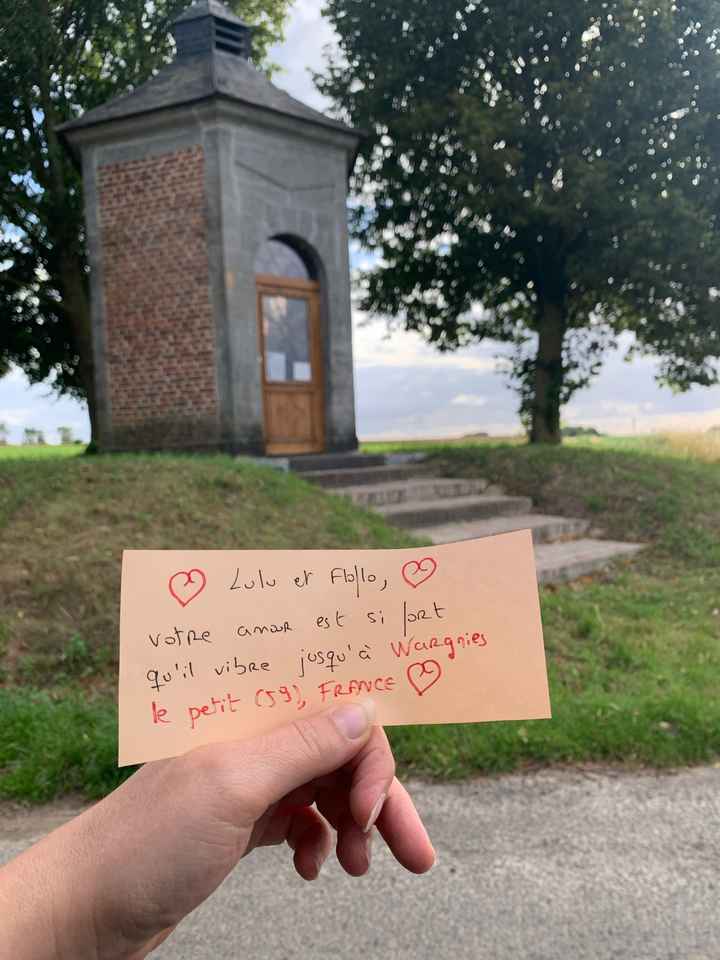 Lulu et Floflo,
votre amour est si fort
qu'il vibre jusqu'à Wargnies
le petit (59), FRANCE